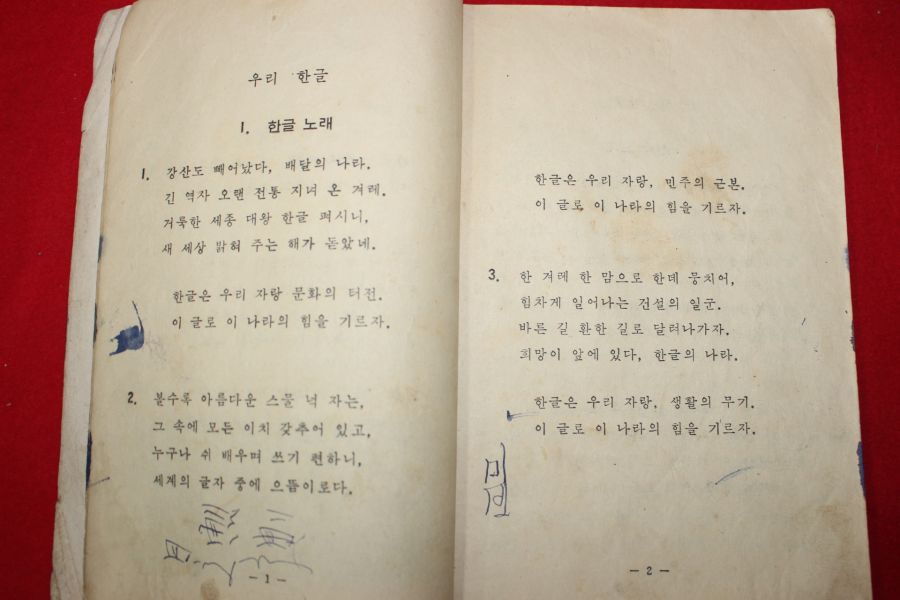 우리 한글
1. 한글 노래
1. 강산도 빼어났다, 배달의 나라.
긴 역자 오랜 전통 지녀 온 겨레.
거룩한 세종 대왕 한글 펴시니,
새 세상 밝혀 주는 해가 돋았네.
한글은 우리 자랑 문화의 터전.
이 글로 이 나라의 힘을 기르자.
2. 볼수록 아름다운 스물 넉 자는,
그 속에 모든 이치 갖추어 있고,
누구나 쉬 배우며 쓰기 편하니,
세계의 글자 중에 으뜸이로다.
- 1 -
한글은 우리 자랑, 민주의 근본.
이 글로 이 나라의 힘을 기르자.
3. 한 겨레 한 맘으로 한데 뭉치어,
힘차게 일어나는 건설의 일군.
바른 길 환한 길로 달려나가자.
희망이 앞에 있다, 한글의 나라.
한글은 우리 자랑, 생활의 무기.
이 글로 이 나라의 힘을 기르자.
- 2 -